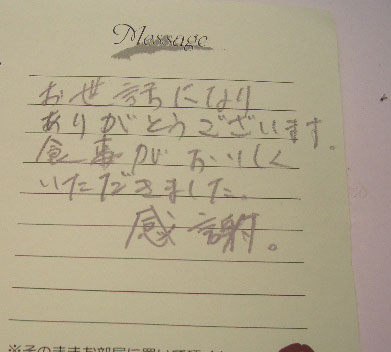 Message
お世話になり
ありがとうございます。
食事がおいしく
いただきました。
感謝。
※そのままお部屋に置いて